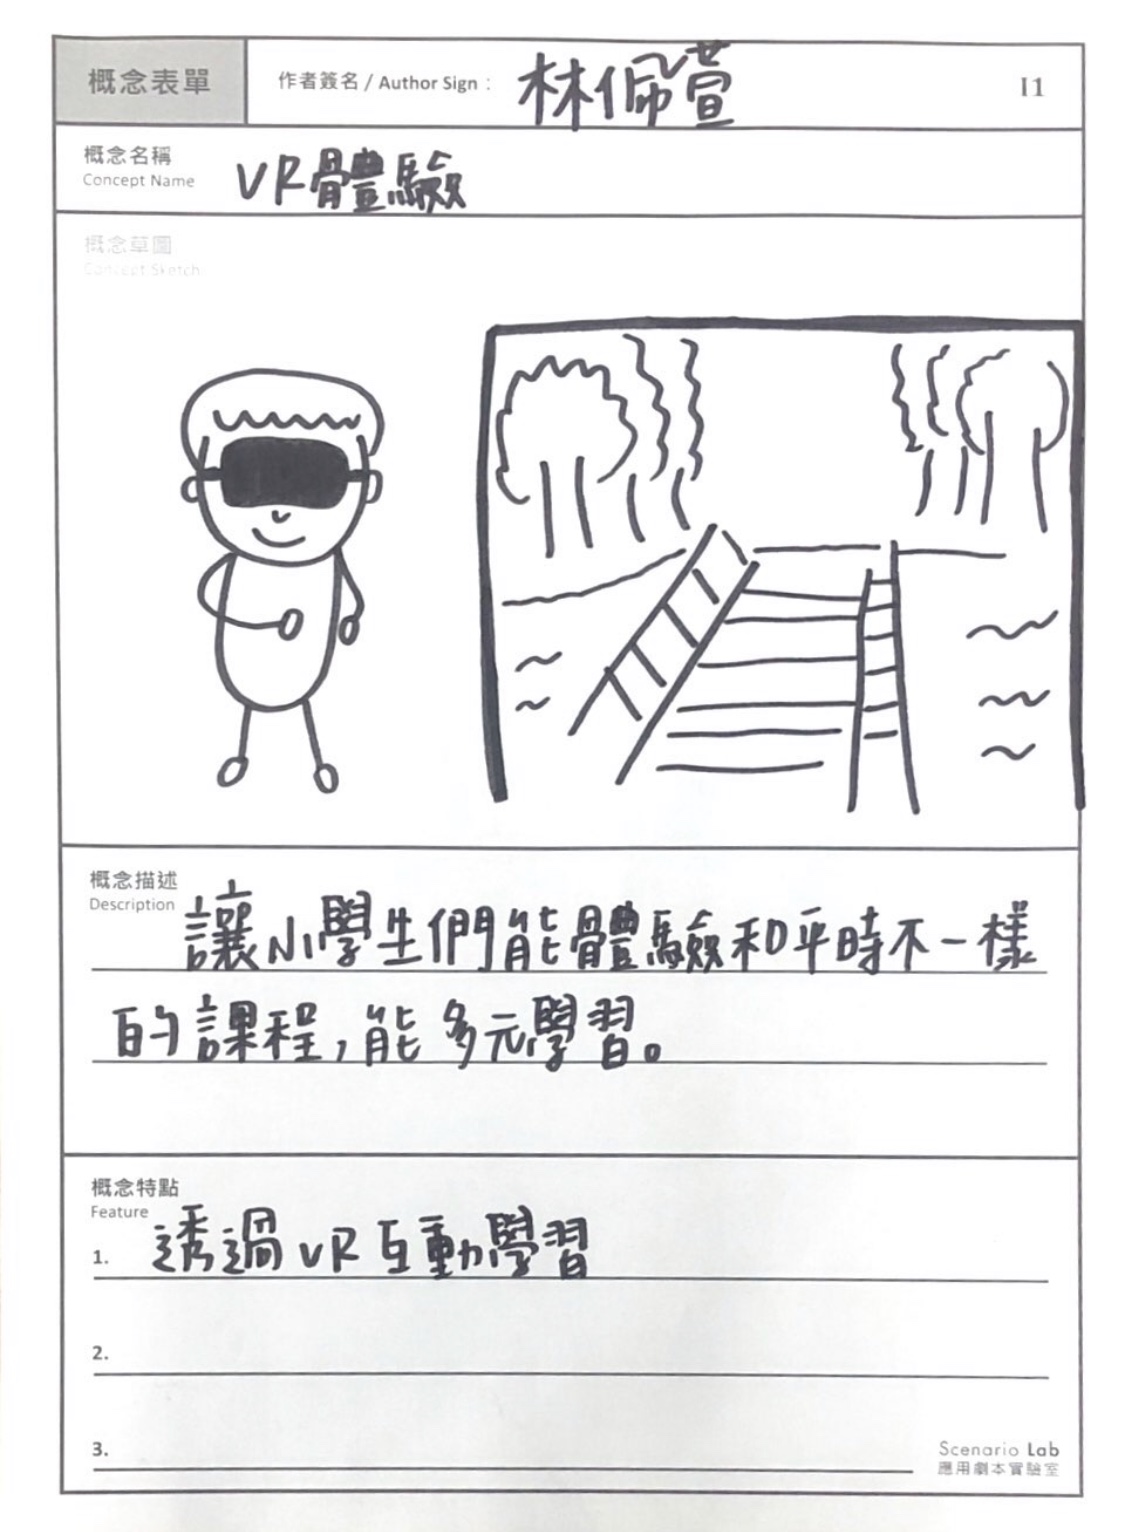 概念表單
作者簽名 / Author Sign : 林佩萱
I1
概念名稱
Concept Name
VR體驗
概念草圖
Concept Sketch
概念描述
Description
讓小學生們能體驗和平時不一樣
的課程,能多元學習。
概念特點
Feature
1. 透過VR互動學習
2.
3.
Scenario Lab
應用劇本實驗室